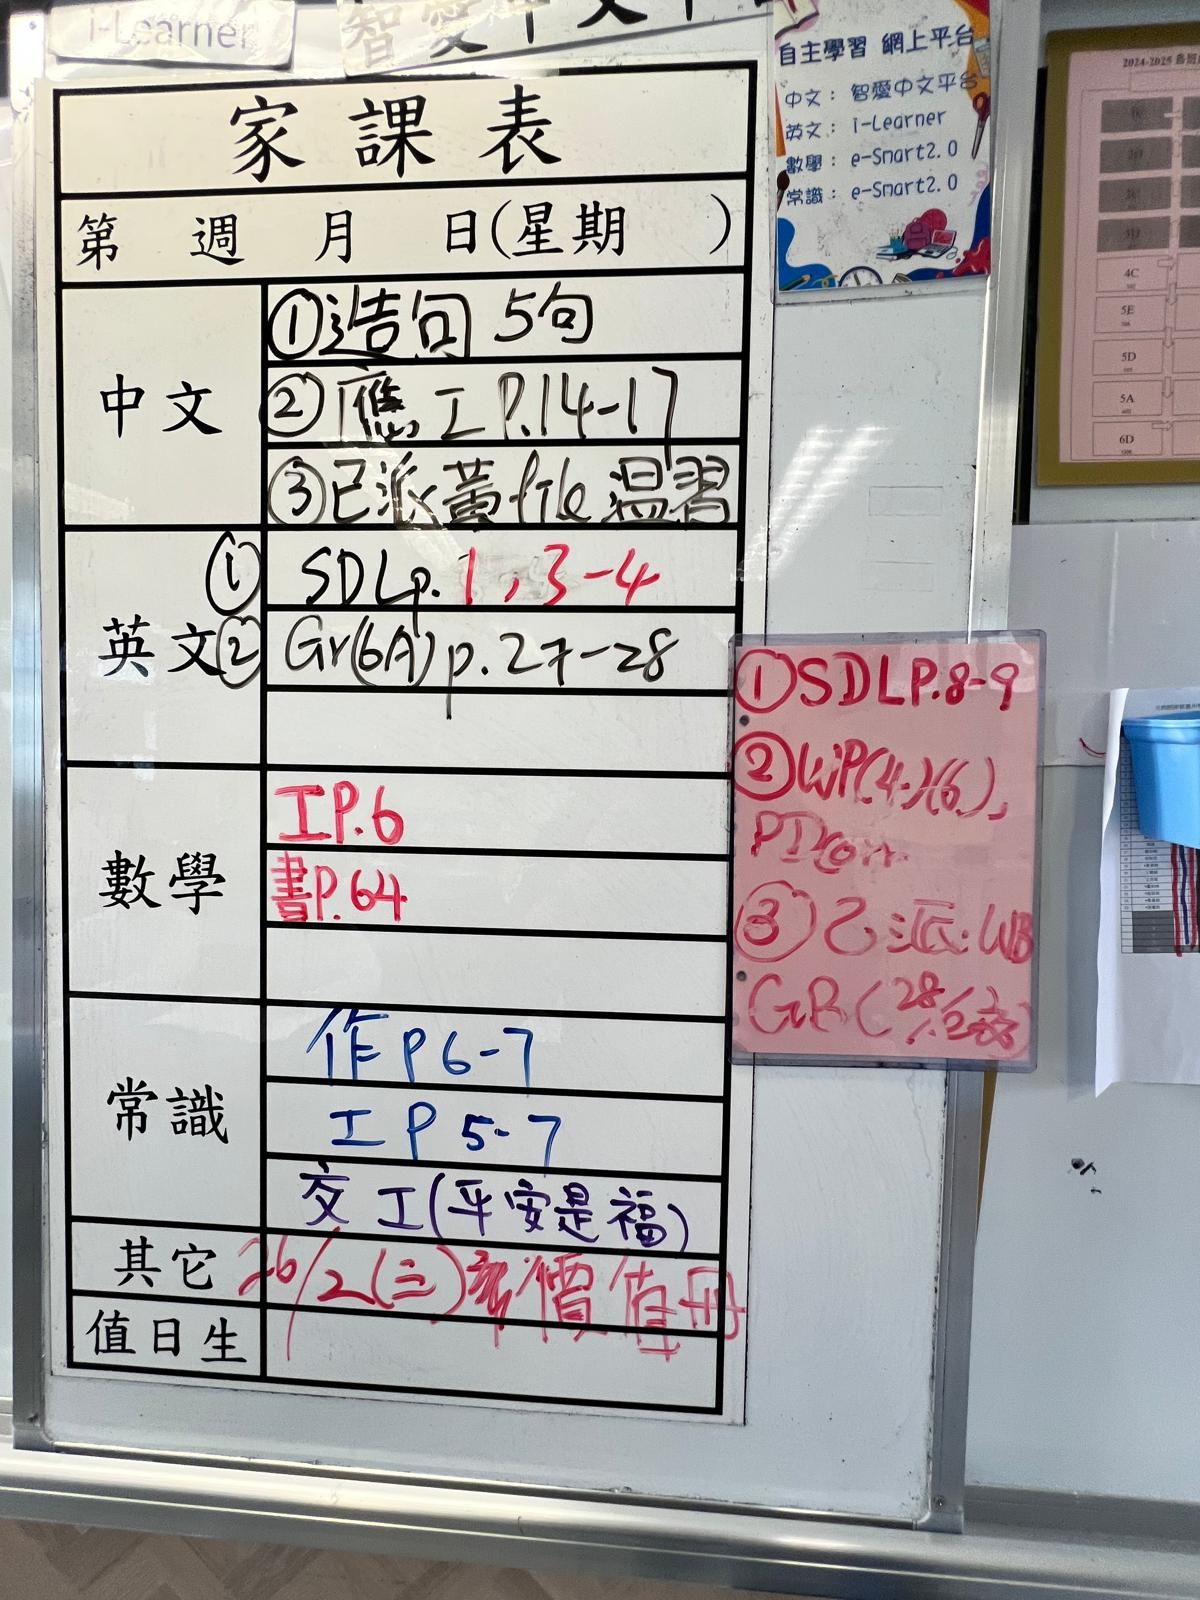 i-Learner
智愛中文平
自主學習 網上平台
中文： 智愛中文平台
英文： i-Learner
數學： e-Smart2.0
常識： e-Smart2.0
家課表
第 週 月 日(星期 )
中文
①造句 5句
②應工P.14-17
③已派黃file溫習
英文
① SDLp. 1,3-4
② Gr(6A)p.27-28
數學
工P.6
書P.64
常識
作P6-7
工P5-7
交工(平安是福)
其它
26/2(三) 價值冊
值日生
①SDLP.8-9
②WP(4)(6),
③已派:WB
GR(28/2
2024-2025
4C
5E
5D
5A
6D